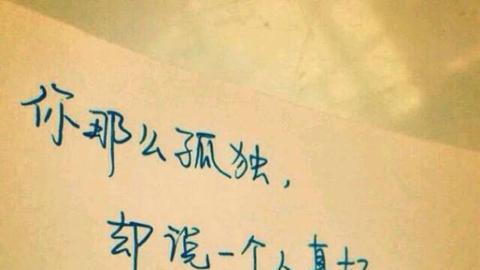 你那么孤独，
却说一个人真好